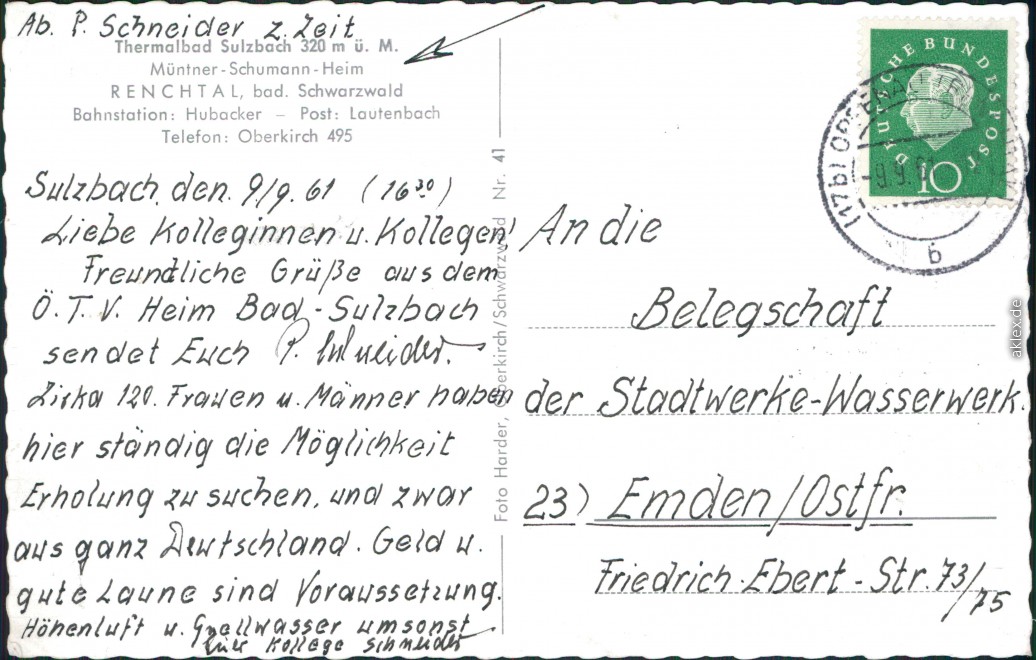 Ab. P. Schneider z. Zeit
Thermalbad Sulzbach 320 m ü. M.
Müntner-Schumann-Heim
RENCHTAL, bad. Schwarzwald
Bahnstation: Hubacker – Post: Lautenbach
Telefon: Oberkirch 495
Sulzbach, den. 9/9. 61 (16³⁰)
Liebe Kolleginnen u. Kollegen!
Freundliche Grüße aus dem
Ö. T. V. Heim Bad-Sulzbach
sendet Euch P. Schneider.
Zirka 120. Frauen u. Männer haben
hier ständig die Möglichkeit
Erholung zu suchen, und zwar
aus ganz Deutschland. Geld u.
gute Laune sind Voraussetzung.
Höhenluft u. Quellwasser umsonst
Euer Kollege Schneider
Foto Harder, Oberkirch/Schwarzwald Nr. 41
DEUTSCHE BUNDESPOST
10
(17b) OPPENAU
-9.9.61
b
An die
Belegschaft
der Stadtwerke-Wasserwerk.
23) Emden/Ostfr.
Friedrich-Ebert-Str. 73/75
aklex.de